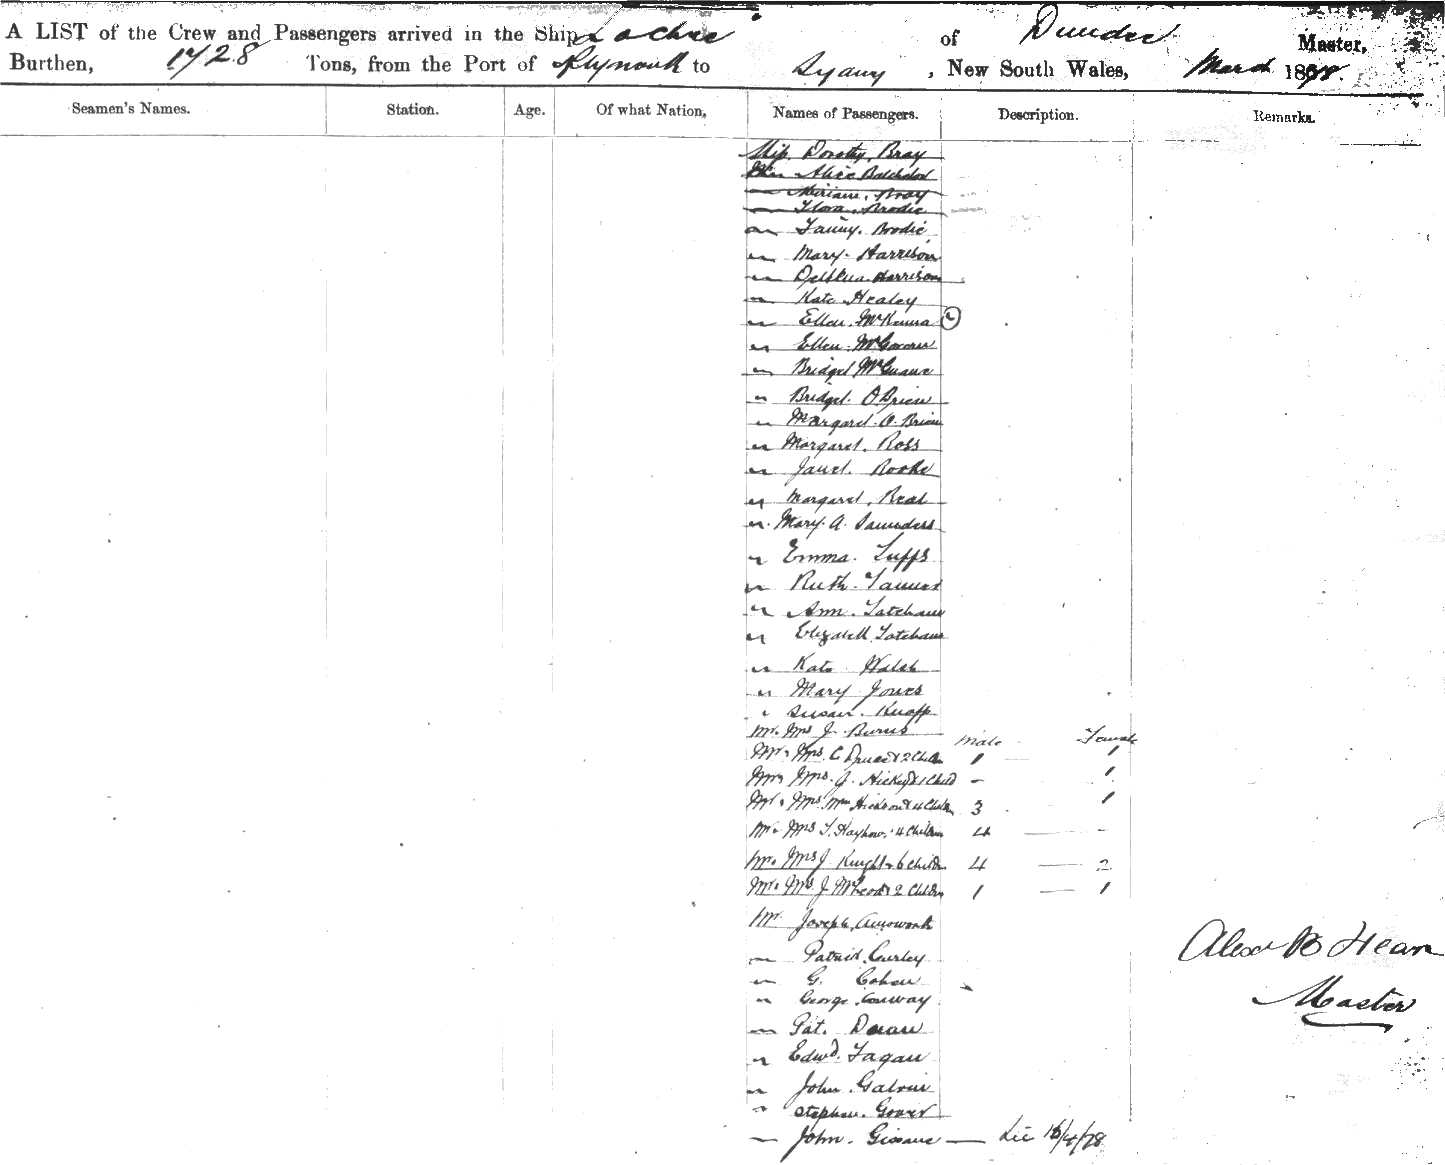 A LIST of the Crew and Passengers arrived in the Ship Lochee of Dundee Master,
Burthen, 1728 Tons, from the Port of Plymouth to Sydney, New South Wales, March 1878.
Seamen's Names. Station. Age. Of what Nation, Names of Passengers. Description. Remarks.
Miss Dorothy Bray
Alice Batchelor
" Miriam Bray
" Flora Brodie
" Fanny Brodie
" Mary Harrison
" Harrison
" Kate Healey
" Ellen McKenna
" Ellen McGovern
" Bridget McGuane
" Bridget O'Brien
" Margaret O'Brien
" Margaret Ross
" Janet Rooke
" Margaret Real
" Mary A. Saunders
" Emma Tuffs
" Ruth Tanner
" Ann Tatchan
" Elizabeth Tatchan
" Kate Walsh
" Mary Jones
" Susan Knapp
Mr. Mrs J. Burns Male Female
Mr. Mrs. C & 2 Children 1 — 1
Mr. Mrs. J. Hickey & 1 Child – 1
Mr. Mrs. Wm & 4 Children 3 1
Mr. Mrs T. Hayhow 4 Children 4 — -
Mr. Mrs J. Knight & 6 Children 4 — 2
Mr. Mrs. J McLeod & 2 Children 1 — 1
Mr. Joseph
Alexr B Hearn
" Patrick Curley
" G. Cohen
Master
" George Conway
" Pat. Doran
" Edwd. Fagan
" John Galvin
" Stephen Gover
— John Gissane — Lic 15/4/78